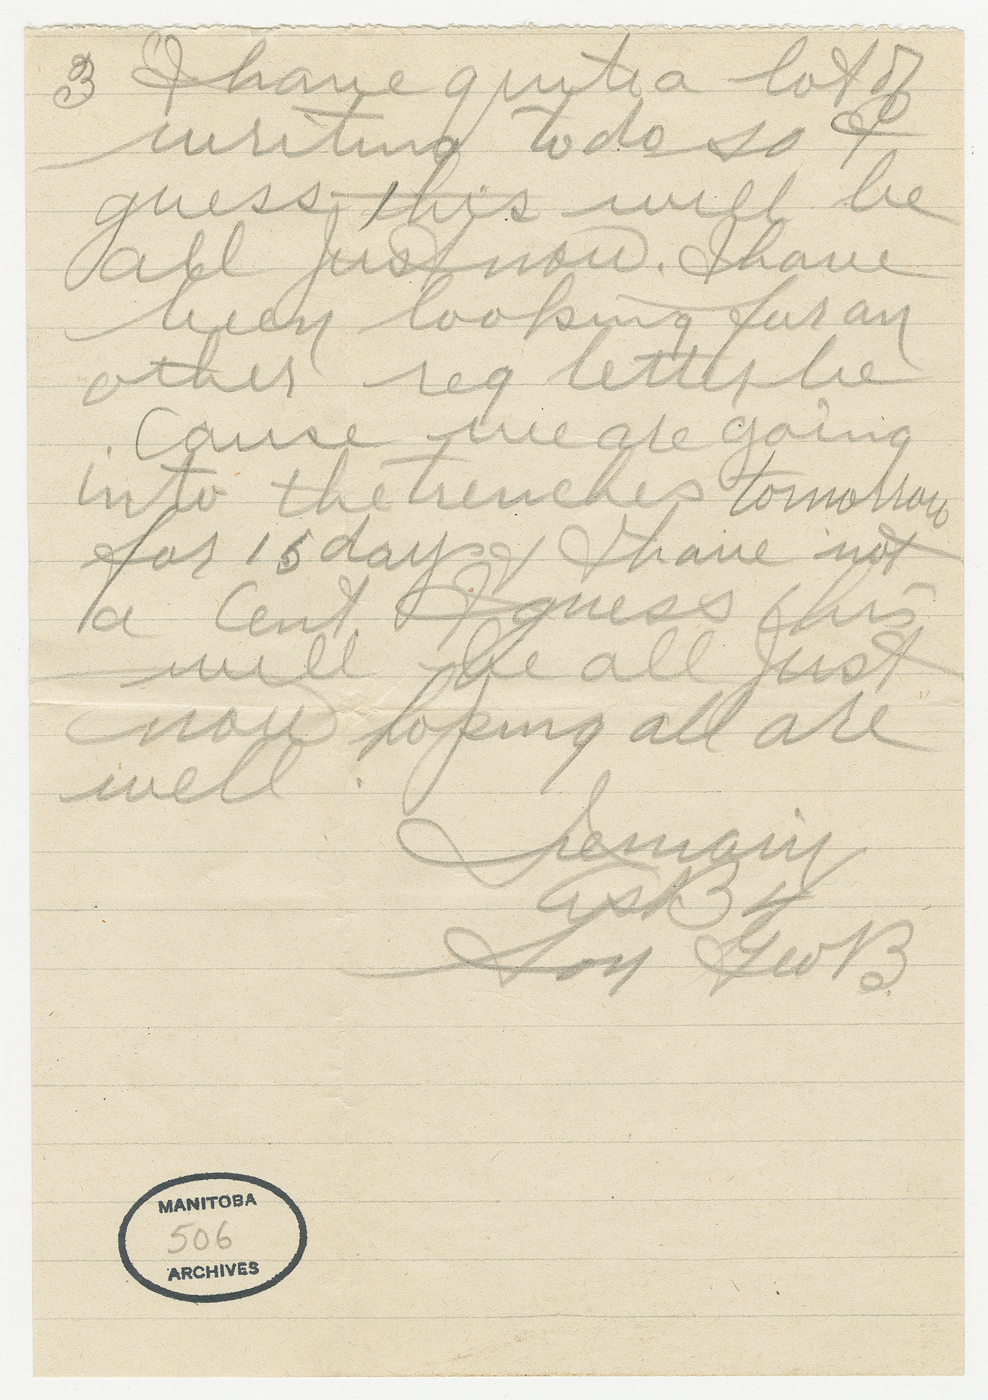 3 I have quite a lot of
writing to do so I
guess this will be
all just now. I have
been looking for an
other reg letter be
. Cause we are going
into the trenches tomorrow
for 15 days & I have not
a Cent I guess this
will be all Just
now hoping all are
well.
I remain
as B 4
Son Geo B.
MANITOBA
506
ARCHIVES